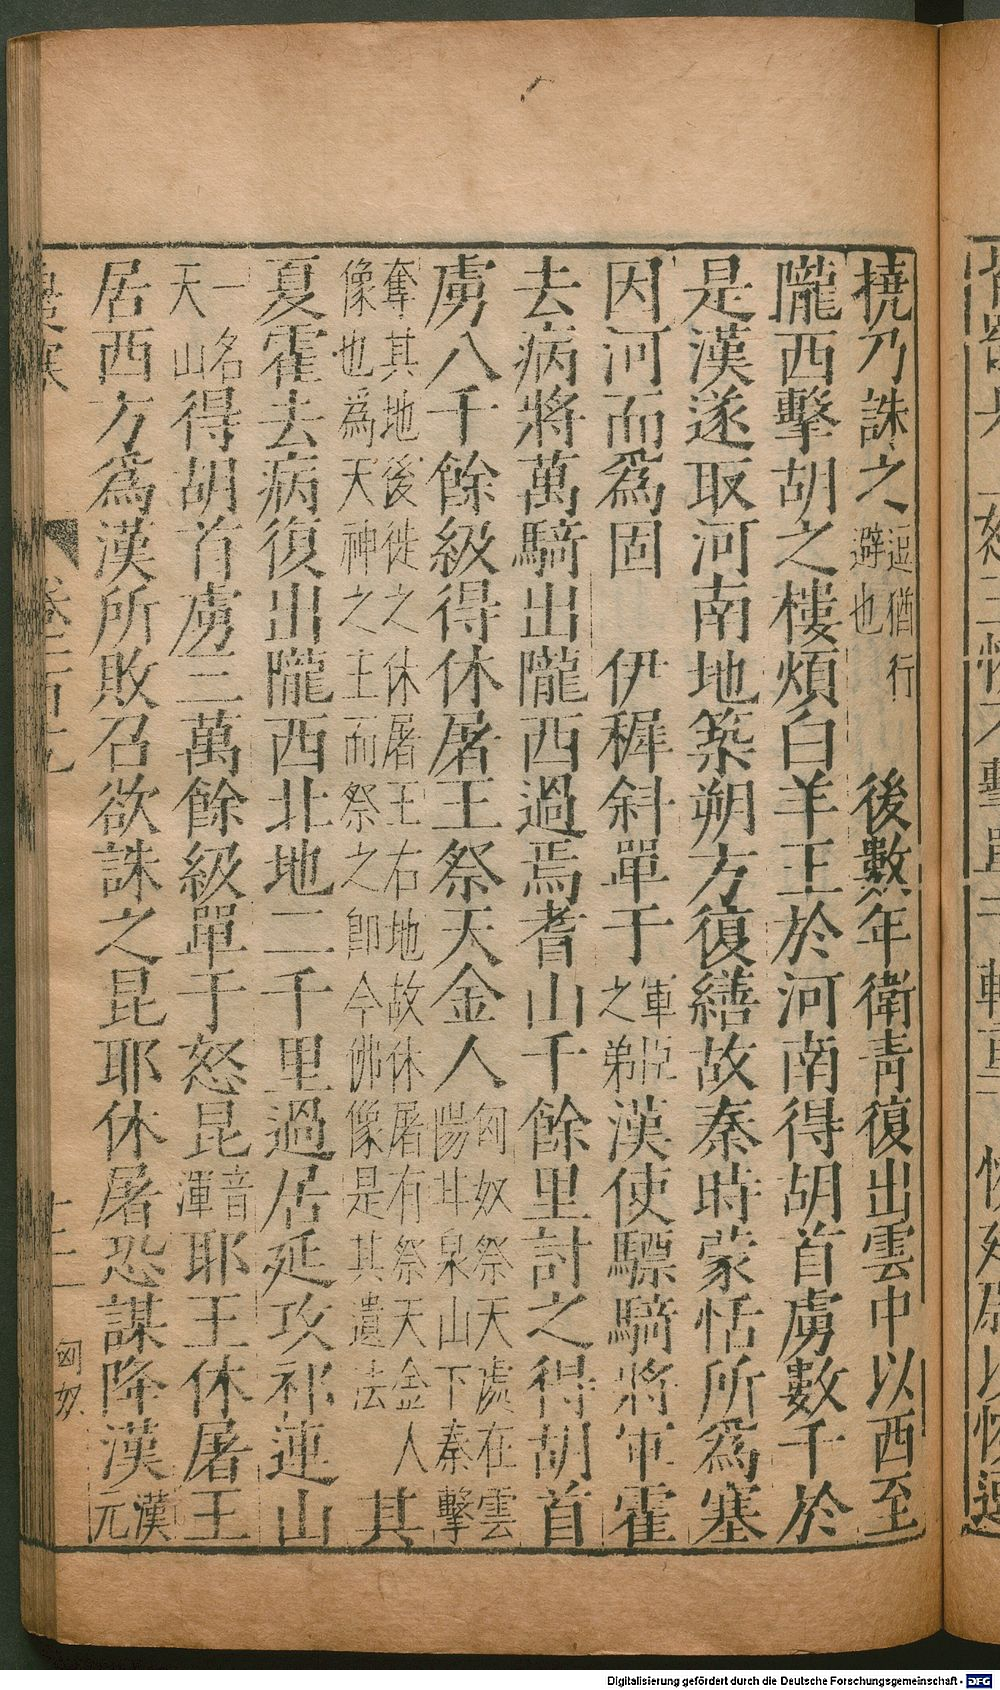 撓乃誅之逗猶行避也　後數年衛青復出雲中以西至
隴西擊胡之樓煩白羊王於河南得胡首虜數千於
是漢遂取河南地築朔方復繕故秦時蒙恬所爲塞
因河而爲固　伊穉斜單于軍臣之弟漢使驃騎將軍霍
去病將萬騎出隴西過焉耆山千餘里計之得胡首
虜八千餘級得休屠王祭天金人匈奴祭天處在雲陽甘泉山下秦擊
奪其地後徙之休屠王右地故休屠有祭天金人像也爲天神之主而祭之即今佛像是其遺法其
夏霍去病復出隴西北地二千里過居延攻祁連山
一名天山得胡首虜三萬餘級單于怒昆音渾耶王休屠王
居西方爲漢所敗召欲誅之昆耶休屠恐謀降漢漢元
匈奴
Digitalisierung gefördert durch die Deutsche Forschungsgemeinschaft - DFG